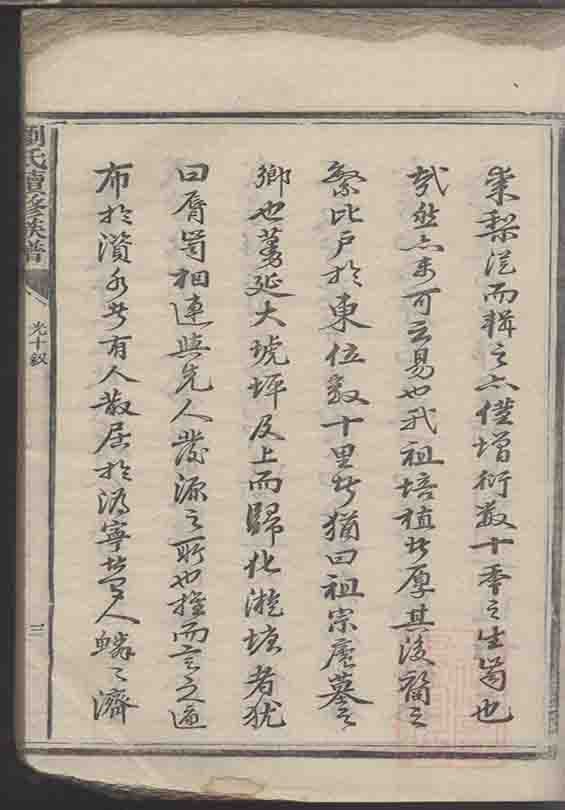 棗梨從而輯之亦僅增衍數十季之生齒也
哉然亦未可云易也我祖培植者厚其後裔之
繁比戶於東位數十里者猶曰祖宗廬墓之
鄉也蔓延大琥坪及上而歸化漇塘者犹
曰唇齒相連與先人發源之所也推而言之遍
布於濱水者有人散居於溈寧者有人鱗之濟
劉氏續修族譜
光十釵
三